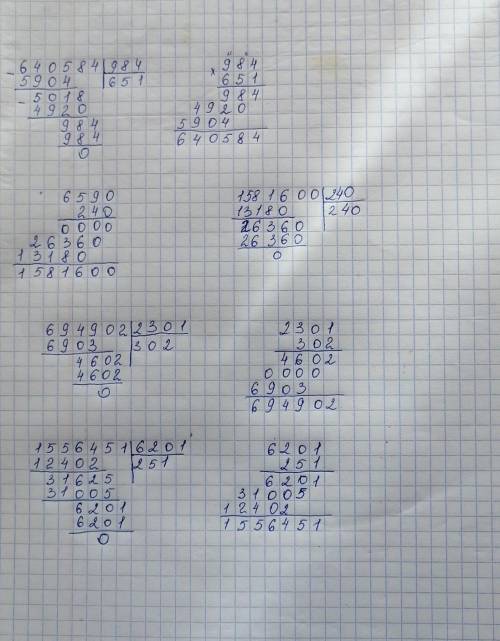 - 640584 | 984
5904 | 651
- 5018
4920
984
984
0
× 984
651
984
4920
5904
640584
6590
240
0000
26360
13180
1581600
1581600 | 240
13180 | 240
26360
26360
0
694902 | 2301
6903 | 302
4602
4602
0
2301
302
4602
0000
6903
694902
1556451 | 6201
12402 | 251
31625
31005
6201
6201
0
6201
251
6201
31005
12402
1556451